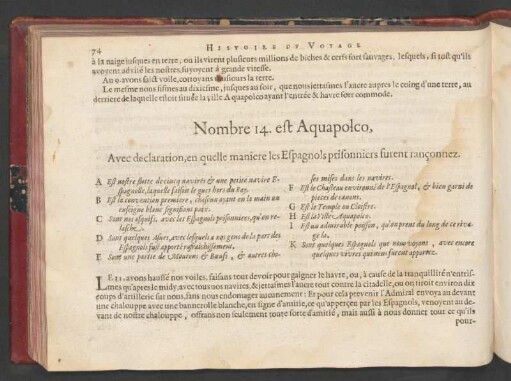 74
HISTOIRE DU VOYAGE
à la naige iusques en terre, ou ils virent plusieurs millions de biches & cerfs fort sauvages, lesquels, si tost qu'ils
avoyent advisé les nostres, fuyoyent à grande vitesse.
Au 9. avons faict voile, costoyans tousiours la terre.
Le mesme nous fismes au dixiesme, jusques au soir, que nous jettasmes l'ancre aupres le coing d'une terre, au
derriere de laquelle estoit située la ville Aquapolco ayant l'entrée & havre fort commode.
Nombre 14. est Aquapolco,
Avec declaration, en quelle maniere les Espagnols prisonniers furent rançonnez.
A Est nostre flotte de cincq navires & une petite navire E-
spagnolle, laquelle faisoit le guet hors du bay.
B Est la convention premiere, chascun ayant en la main un
enseigne blanc signifiant paix.
C Sont nos esquifs, avec les Espagnols prisonniers, qu'on re-
lasche.
D Sont quelques Asnes, avec lesquels à nos gens de la part des
Espagnols fust apporté rafraischissement.
E Sont une partie de Moutons & Bœufs, & autres cho-
ses mises dans les navires.
F Est le Chasteau environné de l'Espagnol, & bien garni de
pieces de canon.
G Est le Temple ou l'eglise.
H Est la Ville Aquapolco.
I Est un admirable poisson, qu'on prent du long de ce riva-
ge la.
K Sont quelques Espagnols que nous voyons, avec encore
quelques vivres qui nous furent apportez.
LE 11. avons haussé nos voiles, faisans tout devoir pour gaigner le havre, ou, à cause de la tranquillité n'entris-
mes qu'apres le midy, avec tous nos navires, & jettasmes l'ancre tout contre la citadelle, ou on tiroit environ dix
coups d'artillerie sur nous, sans nous endomager aucunement: Et pour cela prevenir l'Admiral envoya au devant
une chalouppe avec une bannerolle blanche, en signe d'amitié, ce qu'apperceu par les Espagnols, venoyent au de-
vant de nostre chalouppe, offrans non seulement toute sorte d'amitié, mais aussi à nous donner tout ce qu'ils
pour-